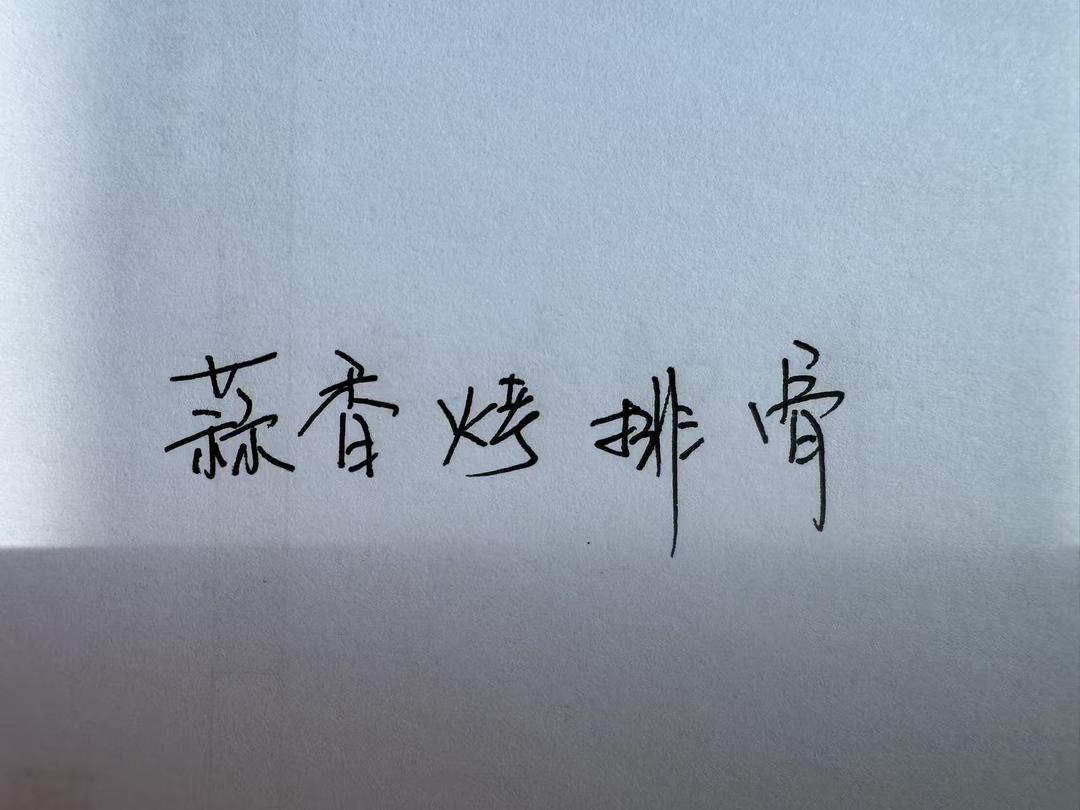 蒜香烤排骨